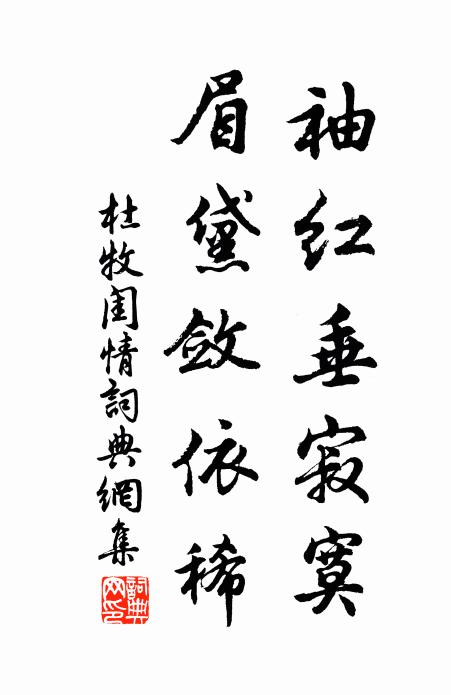 袖红垂寂寞
眉黛敛依稀
杜牧闺情詞典網集
詞典网印